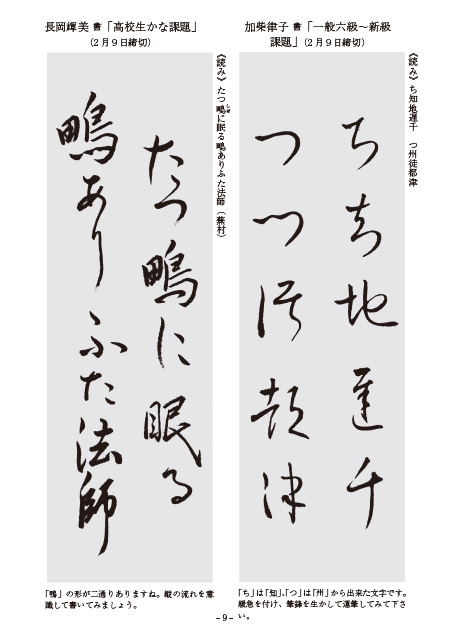 加柴律子 書「一般六級～新級
課題」（2月9日締切）
《読み》ち知地遅千　つ州徒都津
ち知地遅千
つ州徒都津
「ち」は「知」、「つ」は「州」から出来た文字です。
緩急を付け、筆鋒を生かして運筆してみて下さ
い。
長岡輝美 書「高校生かな課題」
（2月9日締切）
《読み》たつ鴫に眠る鴫ありふた法師（蕪村）
しぎ
たつ鴫に眠る
鴫ありふた法師
「鴫」の形が二通りありますね。縦の流れを意
識して書いてみましょう。
- 9 -